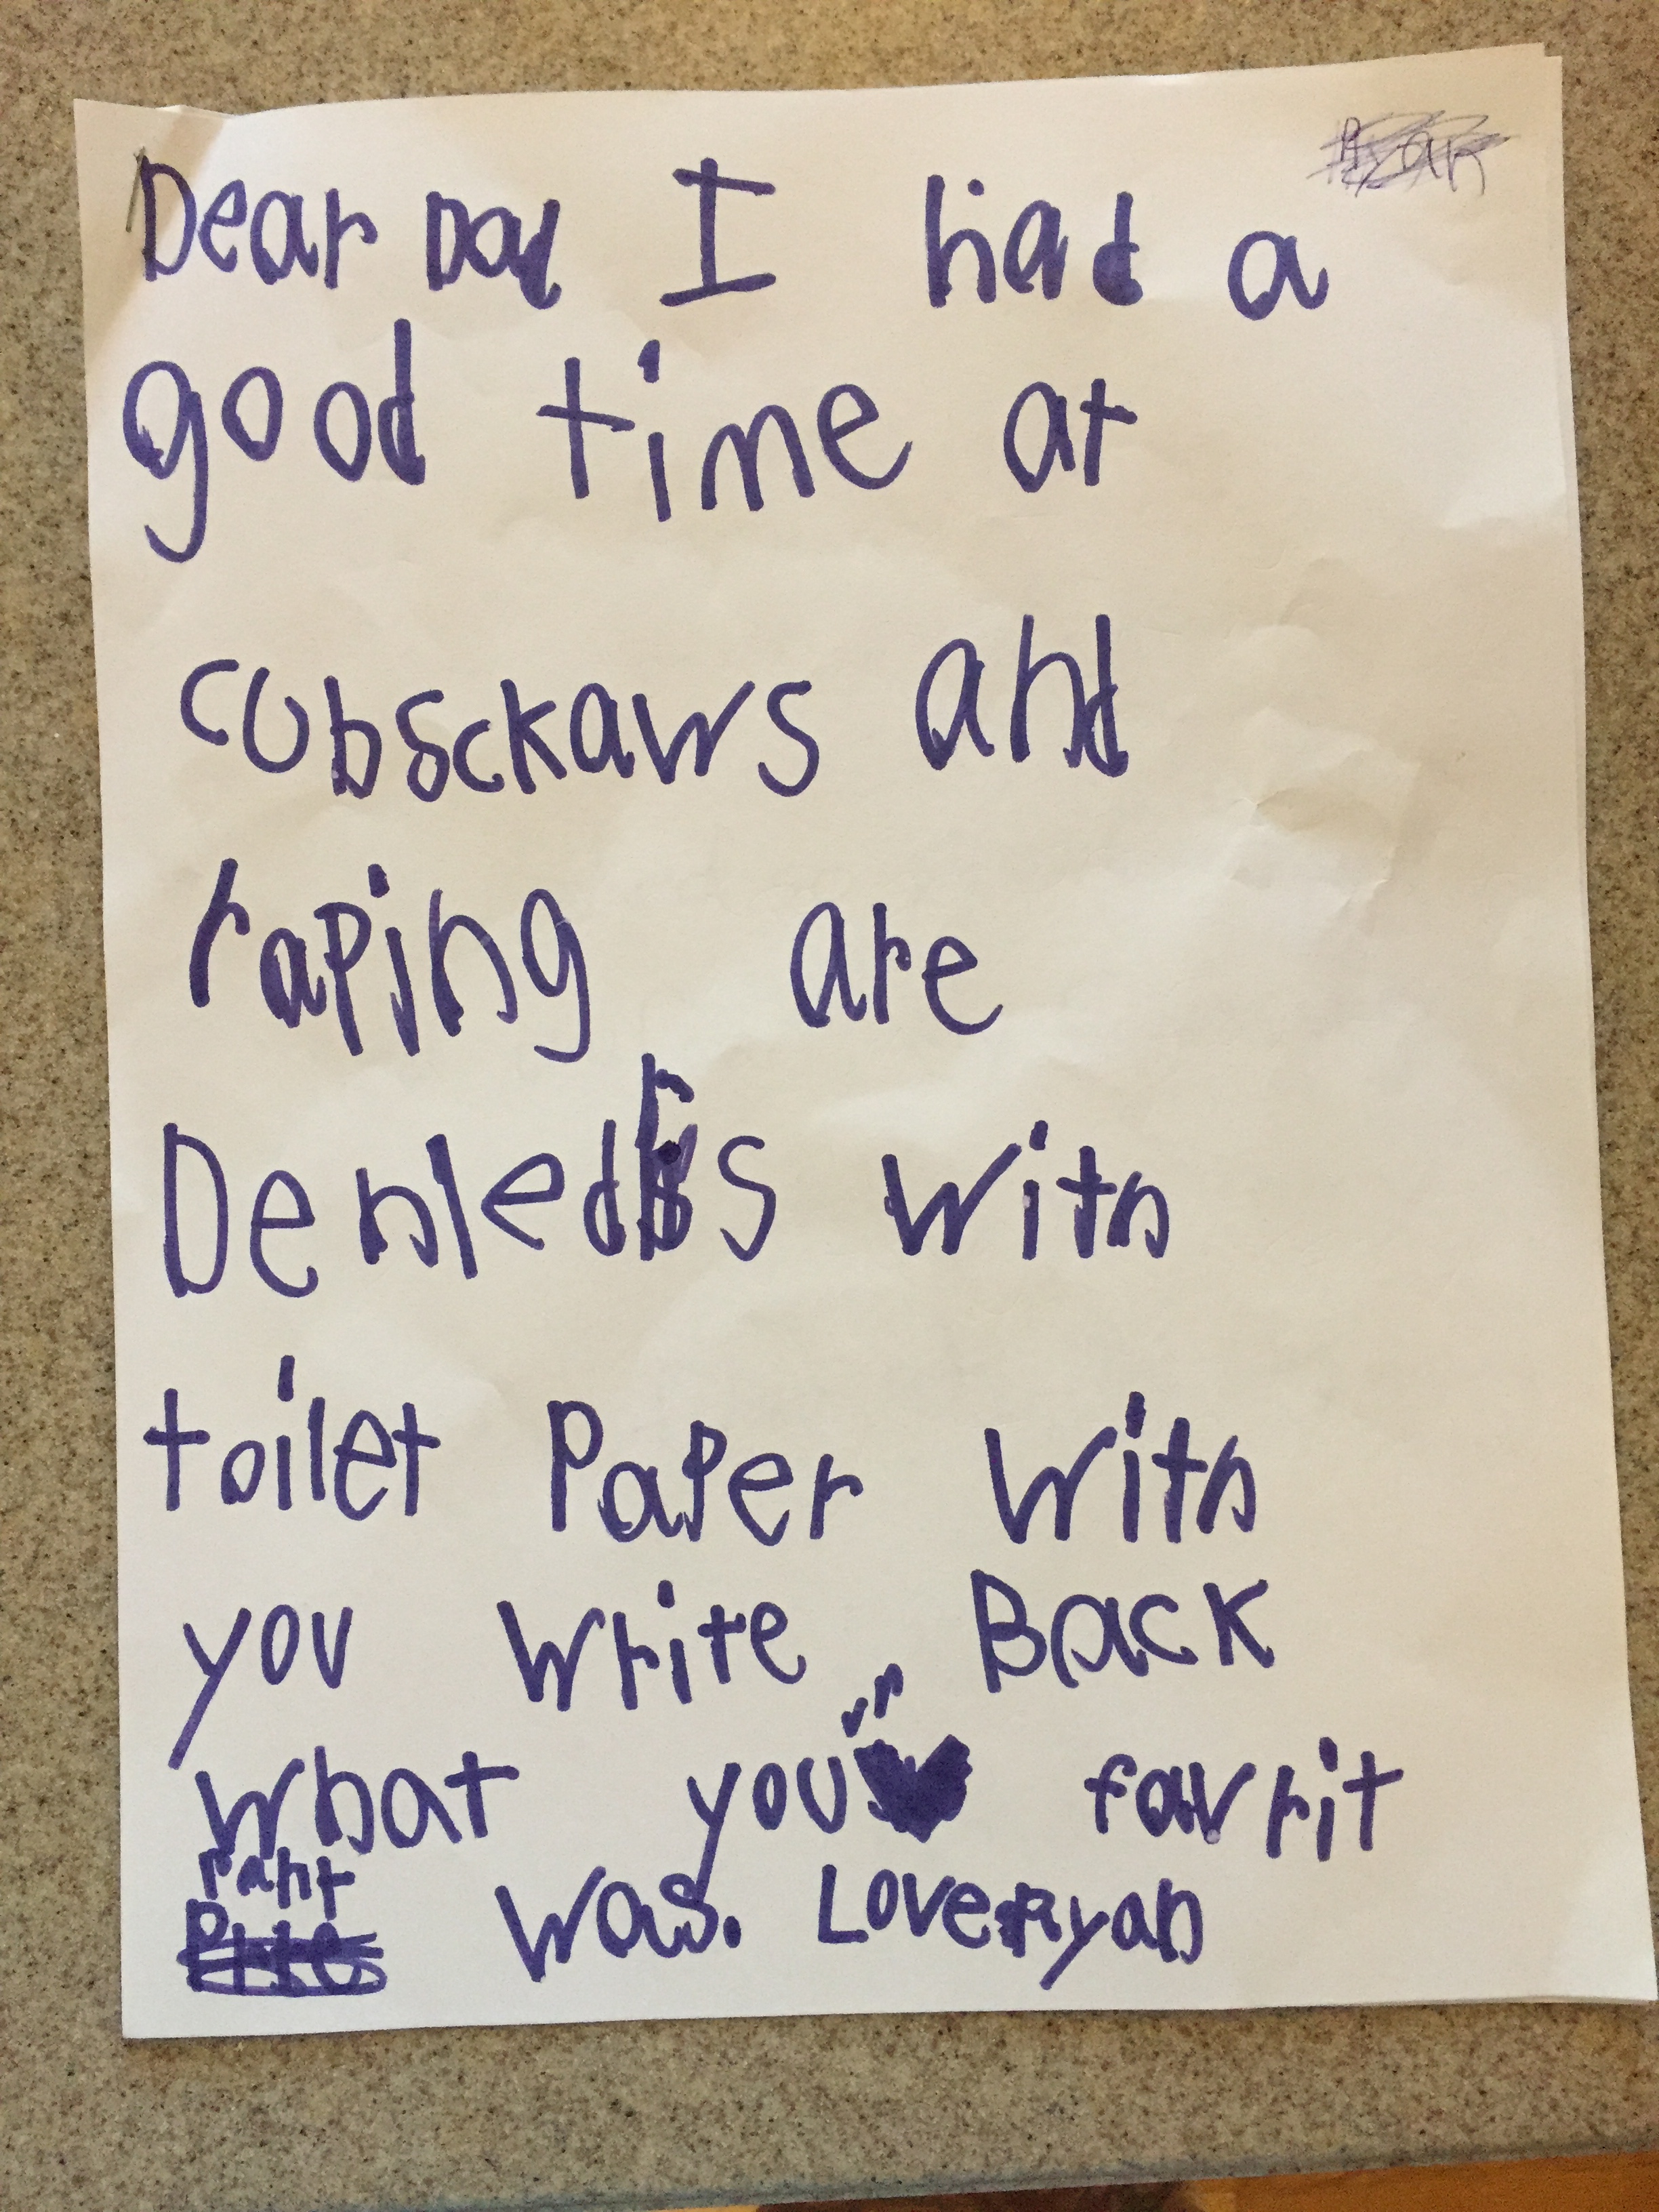 Ryan
Dear Dad I had a
good time at
cubsckaws and
raping are
Denledrs with
toilet Paper with
you write Back
what your favrit
rant
was. Love Ryan